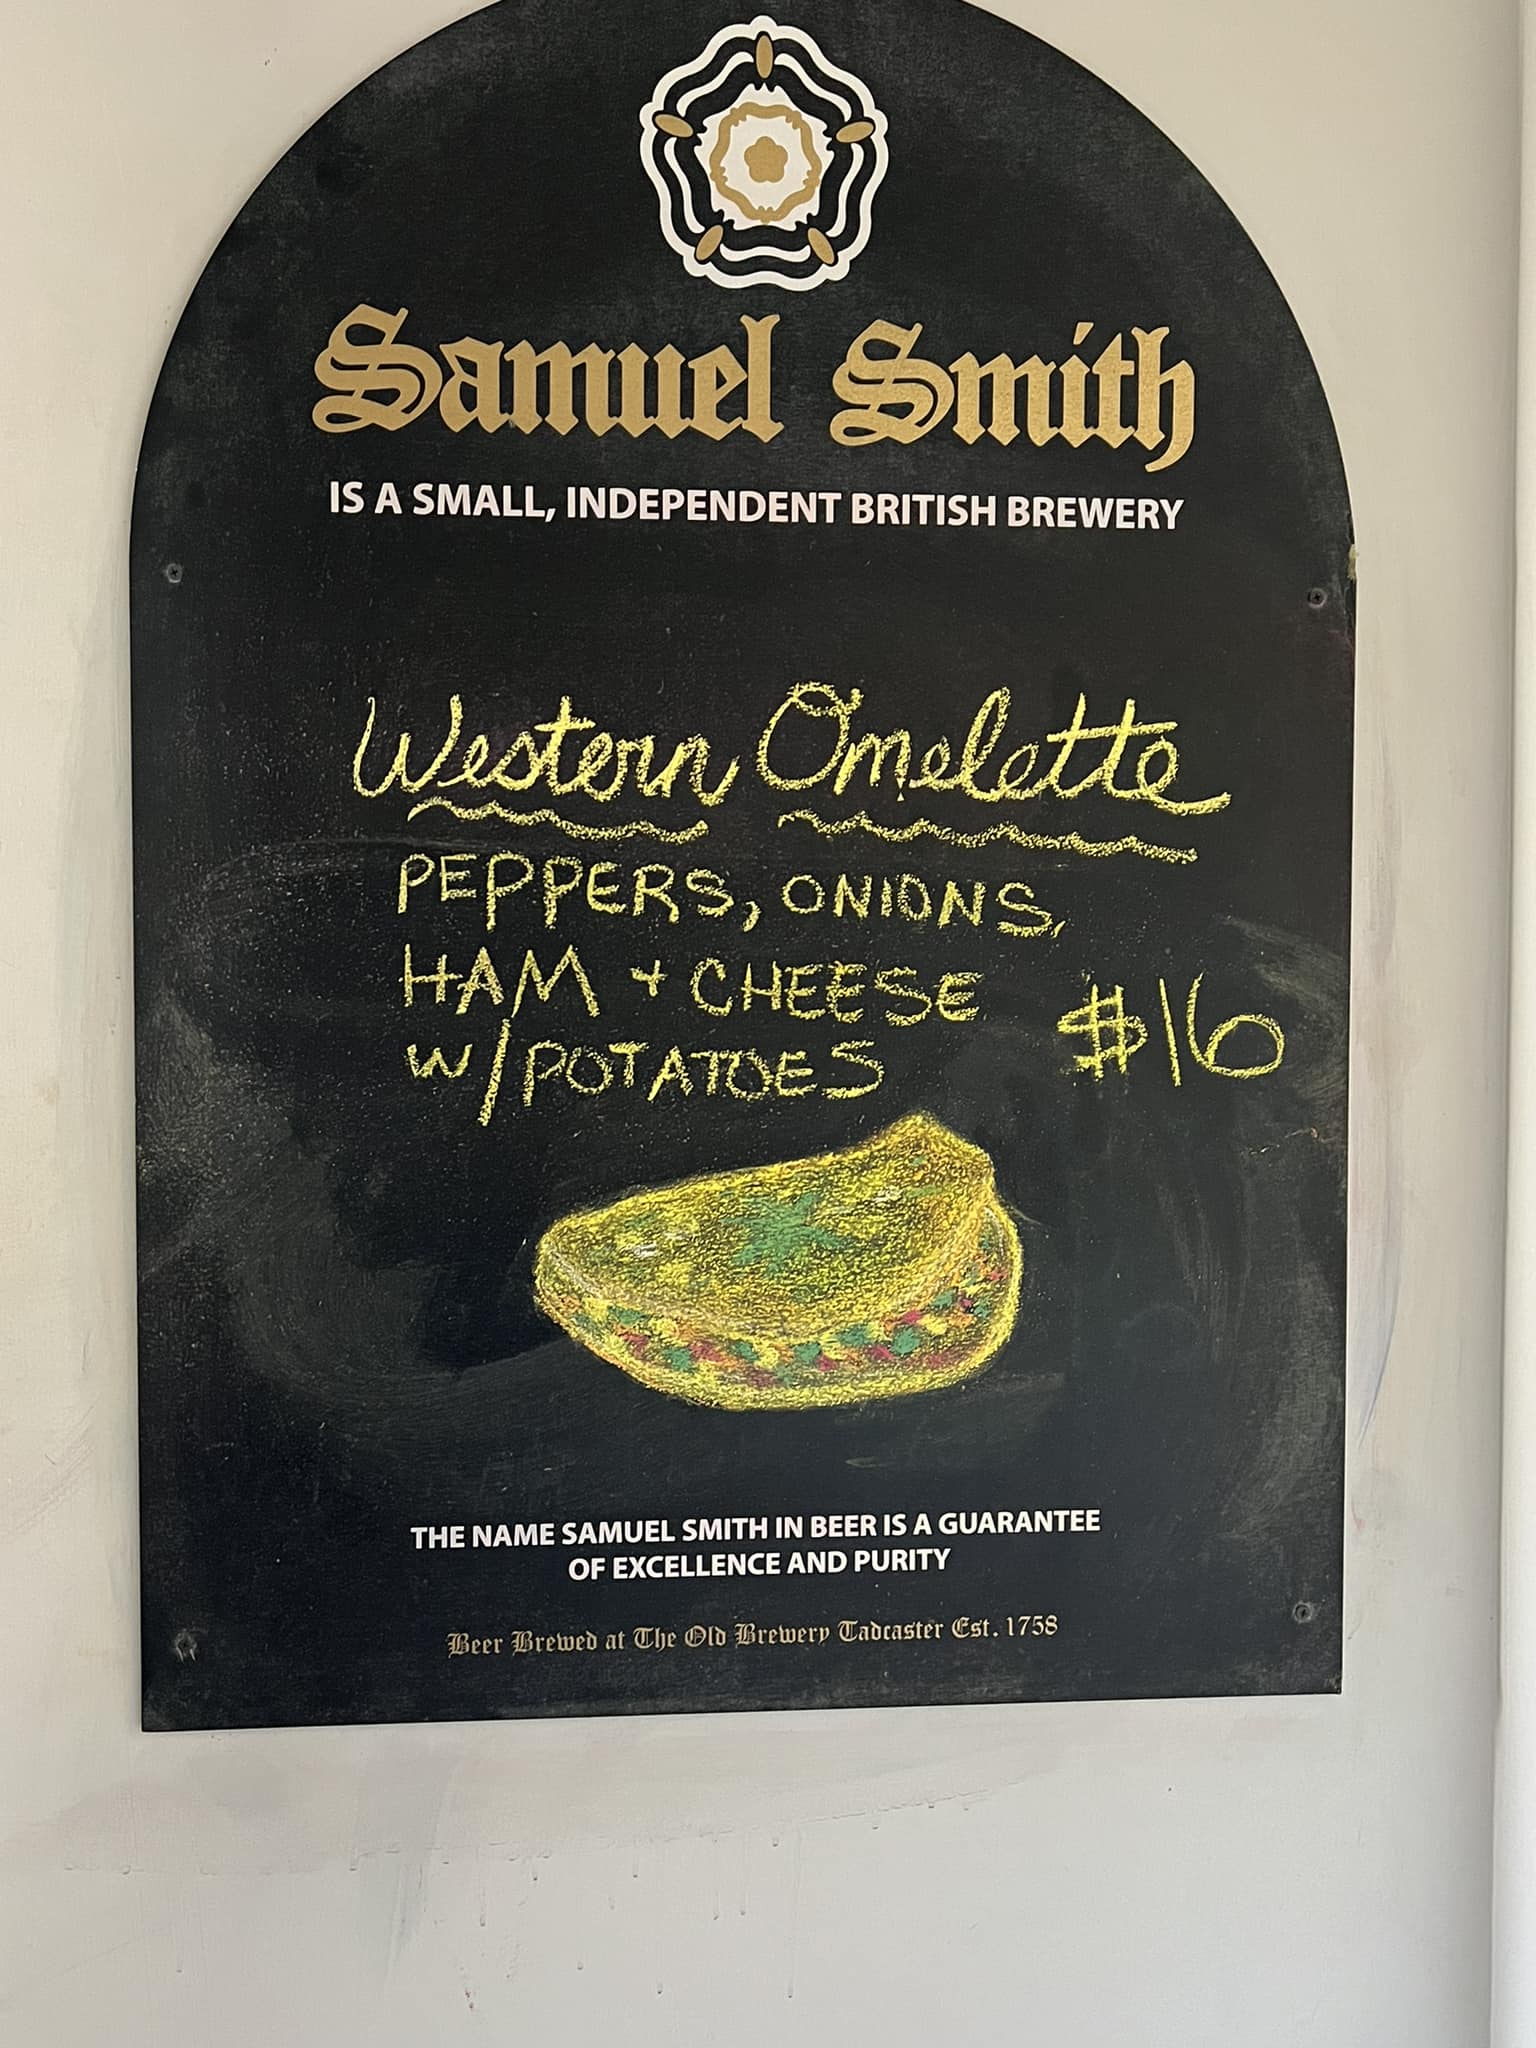 Samuel Smith
IS A SMALL, INDEPENDENT BRITISH BREWERY
Western Omelette
PEPPERS, ONIONS,
HAM + CHEESE
W/POTATOES $16
THE NAME SAMUEL SMITH IN BEER IS A GUARANTEE
OF EXCELLENCE AND PURITY
Beer Brewed at The Old Brewery Tadcaster Est. 1758